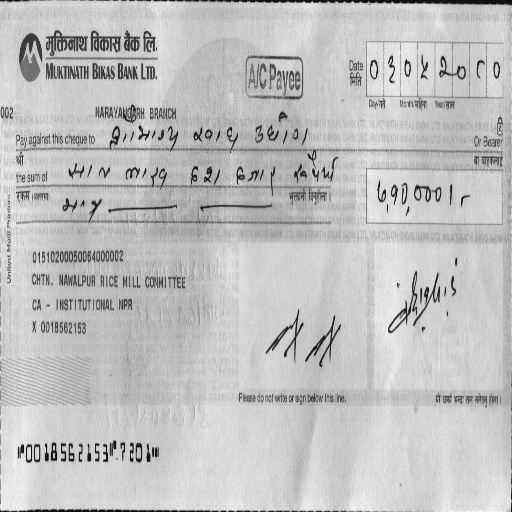 मुक्तिनाथ विकास बैंक लि.
MUKTINATH BIKAS BANK LTD.
A/C Payee
Date
मिति
0 3 0 5 2 0 8 0
Day/गते Month/महिना Year/साल
002
NARAYANGARH BRANCH
Pay against this cheque to खाद्य उद्योग
Or Bearer
श्री
वा वाहकलाई
the sum of सात लाख हजार रुपैयाँ
रकम (अक्षरमा) मात्र
भुक्तानी दिनुहोला ।
United Multi Printers
01510200050064000002
CHTN. NAWALPUR RICE MILL COMMITTEE
CA - INSTITUTIONAL NPR
X 0018562153
Please do not write or sign below this line.
⑈0018562153⑈7201⑈